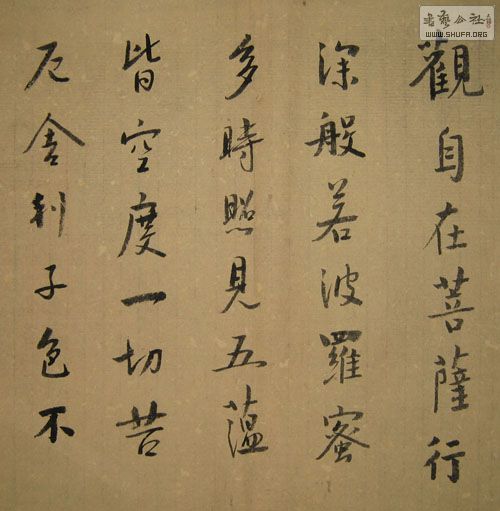 觀自在菩薩行
深般若波羅蜜
多時照見五蘊
皆空度一切苦
厄舍利子色不
書藝公社
WWW.SHUFA.ORG